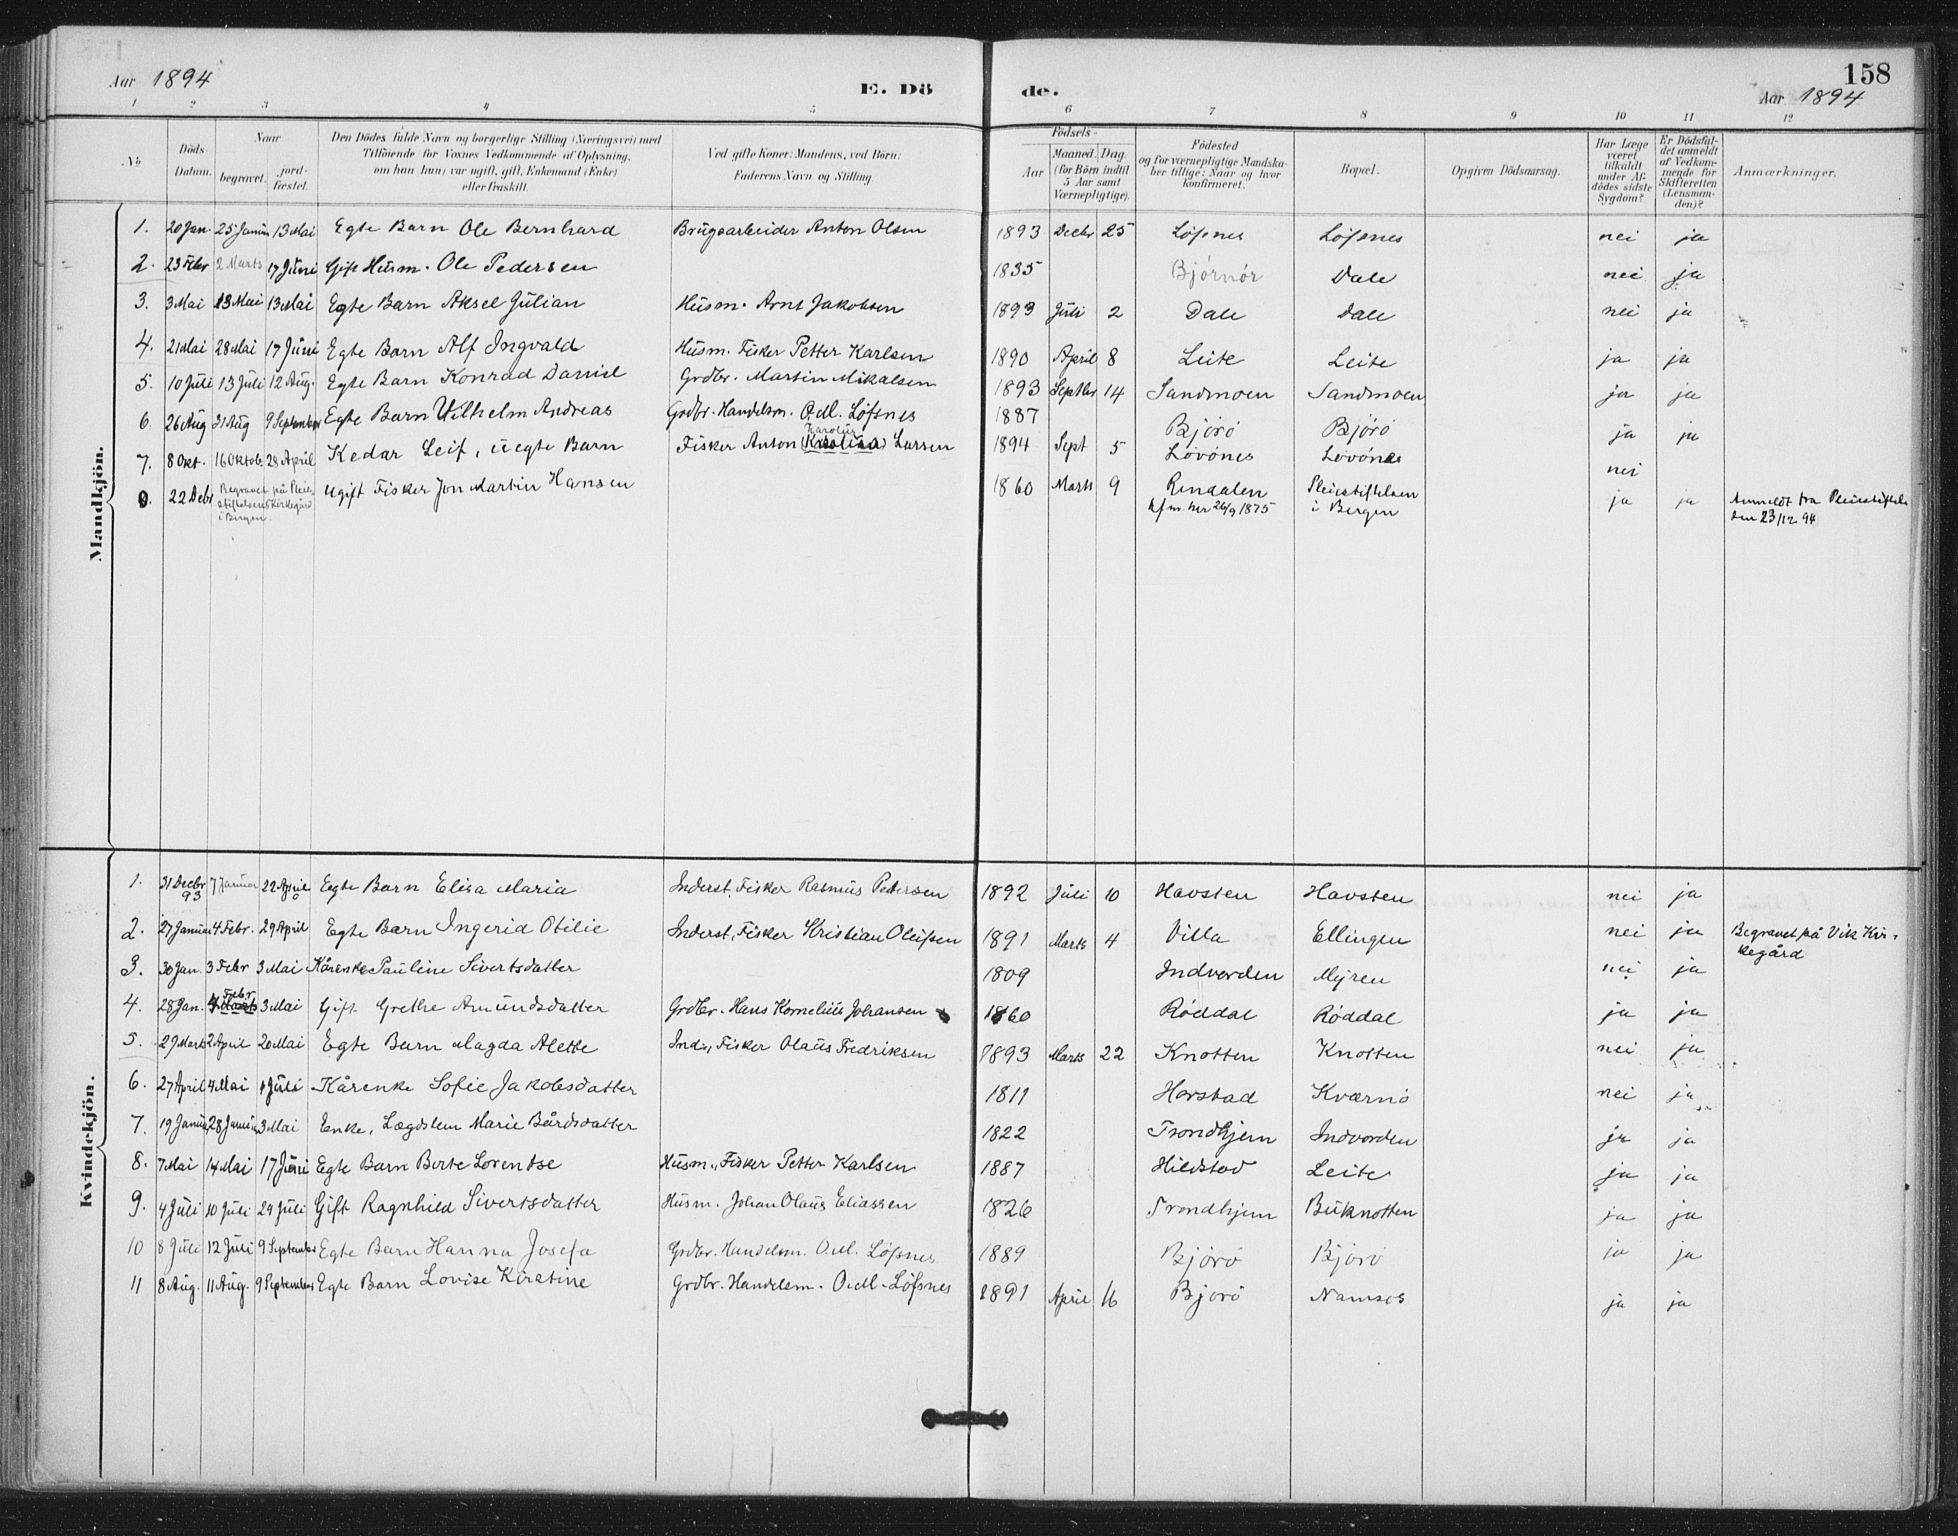 158
Aar 1894 E. Dö de. Aar 1894
1 2 3 4 5 6 7 8 9 10 11 12
No Döds-Datum. Naar begravet. jord-fæstet. Den Dödes fulde Navn og borgerlige Stilling (Næringsvei) med Tilföiende for Voxnes Vedkommende af Oplysning, om han (hun) var ugift, gift, Enkemand (Enke) eller fraskilt. Ved gifte Koner: Mandens, ved Börn: Faderens Navn og Stilling. Födsels- Aar Maaned. Dag (for Börn indtil 5 Aar samt Værnepligtige). Födested og for værnepligtige Mandskaber tillige: Naar og hvor konfirmeret. Bopæl. Opgiven Dödsaarsag. Har Læge været tilkaldt under Afdödes sidste Sygdom? Er Dödsfaldet anmeldt af Vedkommende for Skifteretten (Lensmanden)? Anmærkninger.
Mandkjön.
1. 20 Jan. 25 Januar 13 Mai Egte Barn Ole Bernhard Brugsarbeider Anton Olsen 1893 Decbr 25 Løfsnes Løfsnes nei ja
2. 23 Febr 2 Marts 17 Juni Gift Husm. Ole Pedersen 1835 Bjørnør Dale nei ja
3. 3 Mai 13 Mai 13 Mai Egte Barn Aksel Julian Husm. Arnt Jakobsen 1893 Juli 2 Dale Dale nei ja
4. 21 Mai 28 Mai 17 Juni Egte Barn Alf Ingvald Husm. Fisker Petter Karlsen 1890 April 8 Leite Leite ja ja
5. 10 Juli 13 Juli 12 Aug. Egte Barn Konrad Daniel Grdbr. Martin Mikalsen 1893 Septbr 14 Sandmoen Sandmoen ja ja
6. 26 Aug 31 Aug 9 September Egte Barn Vilhelm Andreas Grdbr. Handelsm. O.M. Løfsnes 1887 Bjørø Bjørø ja ja
7. 8 Okt. 16 Oktob. 28 April Kedar Leif, uegte Barn Fisker Anton (Karolina) Karolius Larsen 1894 Sept 5 Løvønes Løvønes nei
8. 22 Debr Begravet på Pleiestiftelsens Kirkegård i Bergen. Ugift Fisker Jon Martin Hansen 1860 Marts 9 Rendalen kfm. her 26/9 1875 Pleiestiftelsen i Bergen ja ja Anmeldt fra Pleiestiftels den 23/12 94
Kvindekjön.
1. 31 Decbr 93 7 Januar 22 April Egte Barn Elisa Maria Inderst, Fisker Rasmus Petersen 1892 Juli 10 Havsten Havsten nei ja
2. 27 Januar 4 Febr. 29 April Egte Barn Ingerid Otilie Inderst, Fisker Kristian Oleissen 1891 Marts 4 Villa Ellingen nei ja Begravet på Vik Kirkegård
3. 30 Jan. 3 Febr 3 Mai Kårenke Pauline Sivertsdatter 1809 Indvorden Myren nei ja
4. 28 Jan. 4 Febr 3 Mai Gift Grethe Amundsdatter Grdbr. Hans Kornelius Johansen 1860 Røddal Røddal ja ja
5. 29 Marts 2 April 20 Mai Egte Barn Magda Alette Ind., Fisker Olaus Fredriksen 1893 Marts 22 Knotten Knotten nei ja
6. 27 April 4 Mai 1 Juli Kårenke Sofie Jakobsdatter 1811 Horstad Kværnø nei ja
7. 19 Januar 28 Januar 3 Mai Enke, Lægdslem Marie Bårdsdatter 1822 Trondhjem Indvorden ja ja
8. 7 Mai 14 Mai 17 Juni Egte Barn Berte Lorentse Husm., Fisker Petter Karlsen 1887 Hildstad Leite ja ja
9. 4 Juli 10 Juli 29 Juli Gift Ragnhild Sivertsdatter Husm. Johan Olaus Eliassen 1826 Trondhjem Buknotten ja ja
10 8 Juli 12 Juli 9 September Egte Barn Hanna Josefa Grdbr. Handelsm. O.M. Løfsnes 1889 Bjørø Bjørø ja ja
11 8 Aug. 11 Aug. 9 September Egte Barn Lovise Kirstine Grdbr. Handelsm. O.M. Løfsnes 1891 April 16 Bjørø Namsos ja ja